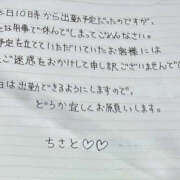 日10日寺から出勤予定だったのですが、
な用事で休んでしまってごめんなさい。
予定を立てていただいていたお客様には
ご迷惑をおかけして申し訳ございませんで
日は出勤できるようにしますので、
どうか宜しくお願いします。
ちさと♡♡